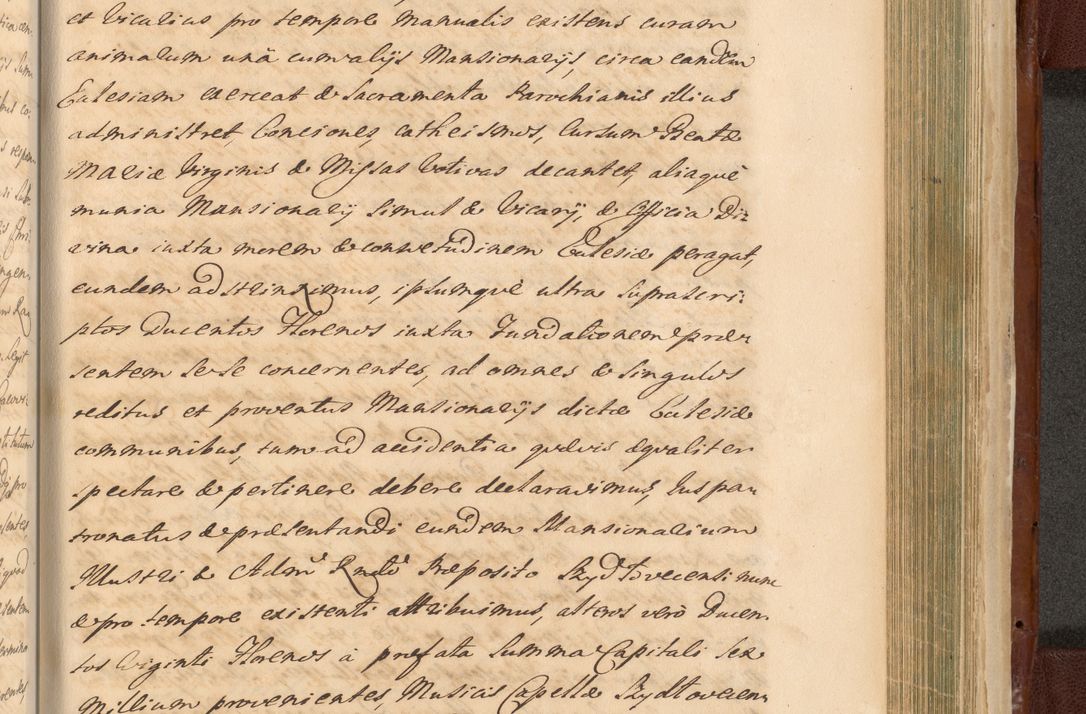 et Vicarius pro tempore Manualis existens curam
animarum unâ cum alijs Mansionarijs, circa eandem
Ecclesiam exerceat & Sacramenta Parochianis illius
administret, Conciones, Cathecismos, Cursum Beatæ
Mariæ Virginis & Missas Votivas decantet, aliaquè
munia Mansionarij simul & Vicarij, & Officia Di-
vina iuxta morem & consvetudinem Ecclesiæ peragat,
eundem adstrinximus, ipsumquè ultra suprascri-
ptos Ducentos Florenos iuxta Fundationem præ-
sentem se se concernentes, ad omnes & singulos
reditus et proventus Mansionarijs dictæ Ecclesiæ
communibus, tum ad accidentia quævis æqualiter
spectare & pertinere debere declaravimus, Jus pa-
tronatus & præsentandi eundem Mansionarium
Illustri & Adm: Rndo Præposito Szydłovecensi nunc
& pro tempore existenti attribuimus, alteros verò Ducen-
tos Viginti Florenos à præfata Summa Capitali sex
Millium provenientes, Musicis Capellæ Szydłovecen-